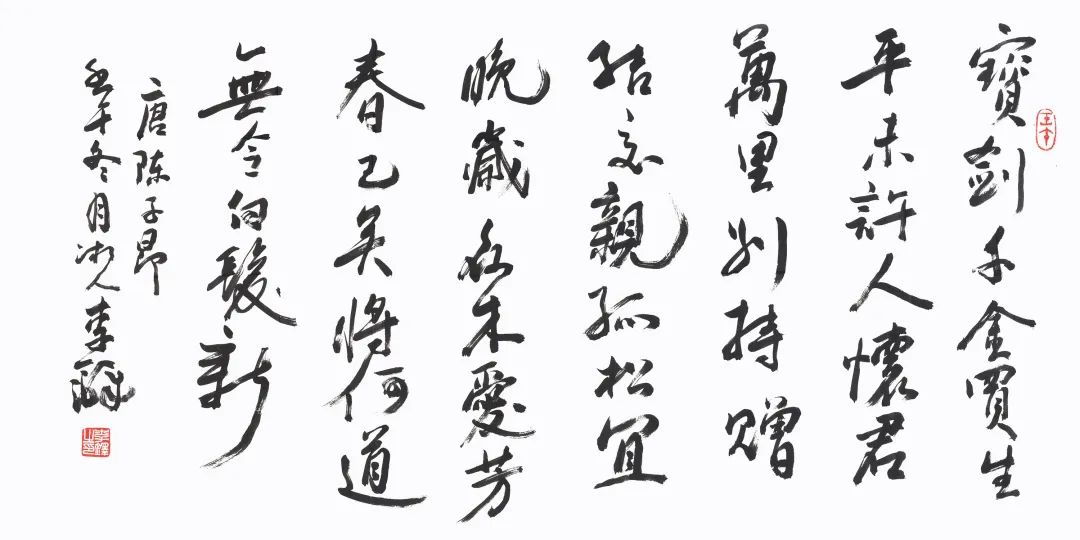 寶劍千金買生
平未許人懷君
萬里別持贈
結交親孤松宜
晚歲衆木愛芳
春已矣將何道
無令白髮新
唐陳子昂
壬午冬月李鐸